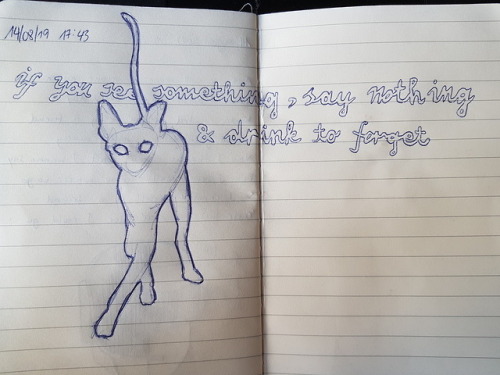 14/08/19 17:43
if you see something, say nothing
& drink to forget